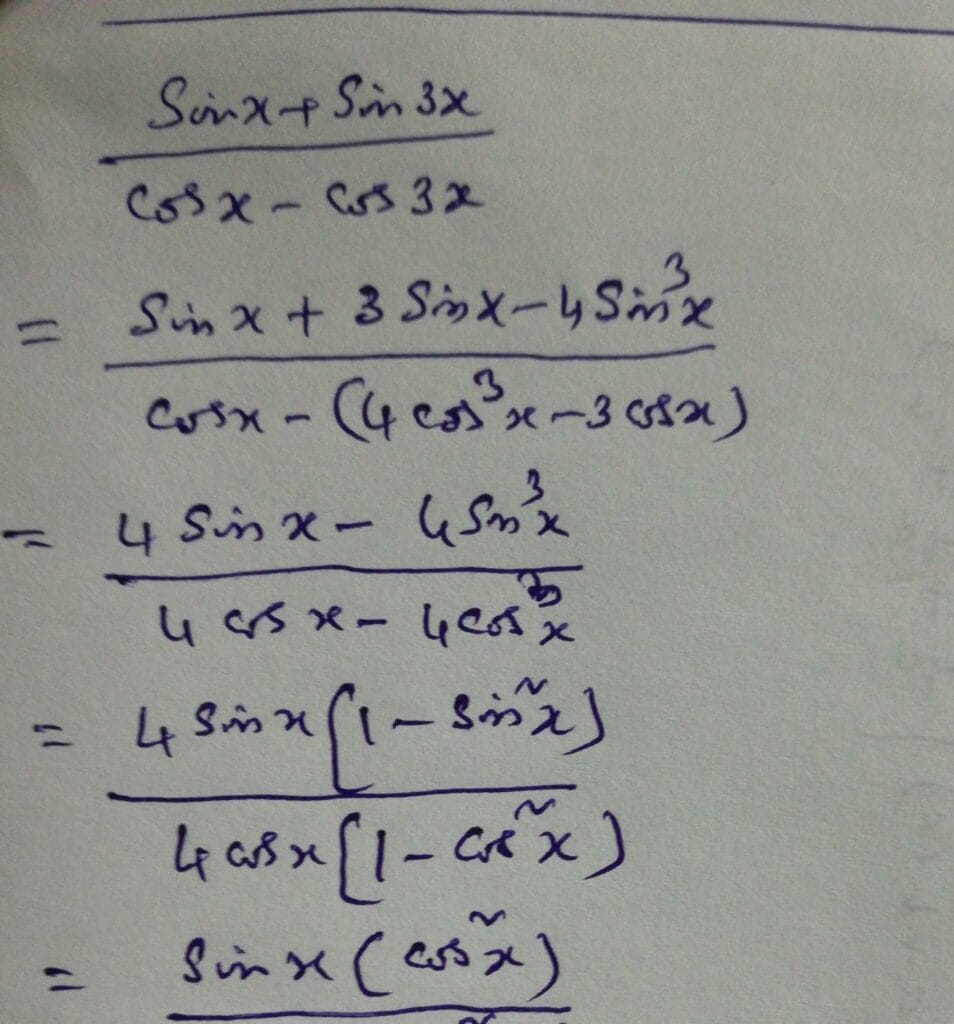 Sin x + Sin 3x
cos x - cos 3x
= Sin x + 3 Sin x - 4 Sin³x
cos x - (4 cos³x - 3 cos x)
= 4 Sin x - 4 Sin³x
4 cos x - 4 cos³x
= 4 Sin x [1 - Sin²x]
4 cos x [1 - cos²x]
= Sin x (cos²x)